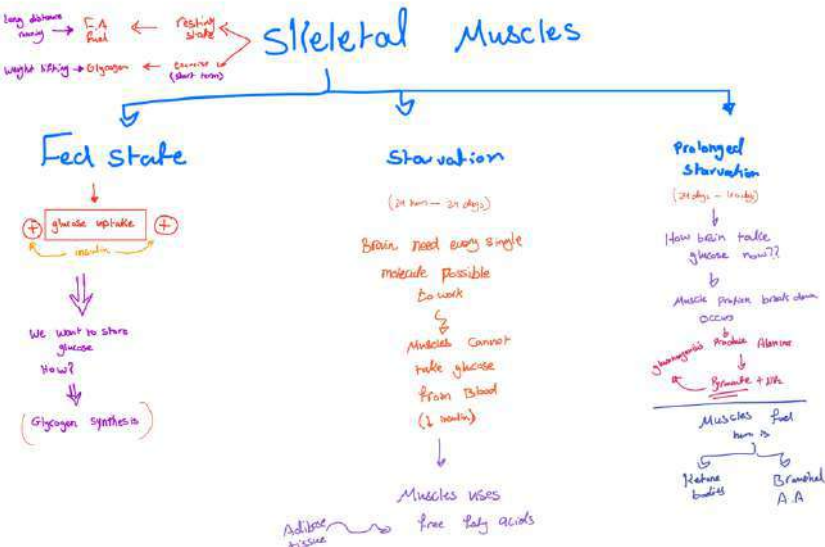 Skeletal Muscles
long distance
runnig → F.A
fuel ← resting
state
weight lifting → Glycogen ← exercise
(short term)
Fed state
glucose uptake
insulin
We want to store
glucose
How?
(Glycogen synthesis)
Starvation
(24 hours — 24 days)
Brain need every single
molecule possible
to work
Muscles Cannot
take glucose
from Blood
(↓ insulin)
Muscles uses
free faty acids
Adibose
tissue
Prolonged
starvation
(24 days — 40 days)
How brain take
glucose now??
Muscle protien break down
occurs
Produce Alanine
Pyruvate + NH₂
Muscles fuel
here is
Ketone
bodies
Branched
A.A